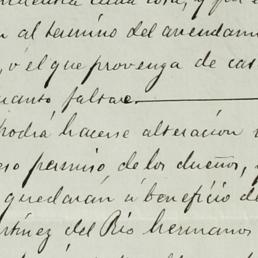 cada cosa, y por e
n al termino del arrendami
, ó el que provenga de cas
uanto faltare.
podrá hacerse alteracion
eso permiso de los dueños,
quedarán á beneficio de
rtinez del Rio hermanos